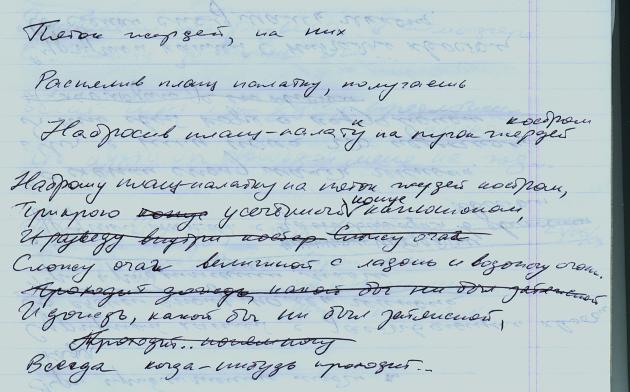 Пяток жердей, на них
Распялив плащ палатку, получаешь
костром
Набросив плащ-палатку на пучок жердей
Наброшу плащ-палатку на пяток жердей костром,
конус
Прикрою конус усечённый капюшоном,
И разведу внутри костер Сложу очаг
Сложу очаг величиной с ладонь и возожгу огонь.
Проходит дождь, какой бы ни был затяжной
И дождь, какой бы ни был затяжной,
Проходит..
Всегда когда-нибудь проходит...